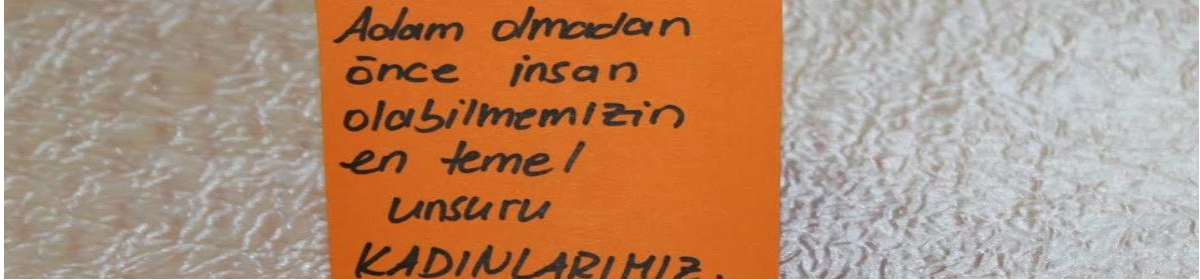 Adam olmadan
önce insan
olabilmemizin
en temel
unsuru
KADINLARIMIZ.